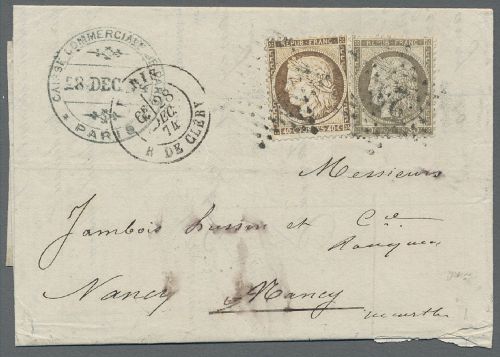 CAISSE COMMERCIALE
28 DEC
PARIS
PARIS
6E 28
DEC.
74
R DE CLÉRY
REPUB · FRANC ·
15
REPUB · FRANC ·
Messieurs
Jambois husson et Cie
Banquiers
Nancy Nancy
meurthe